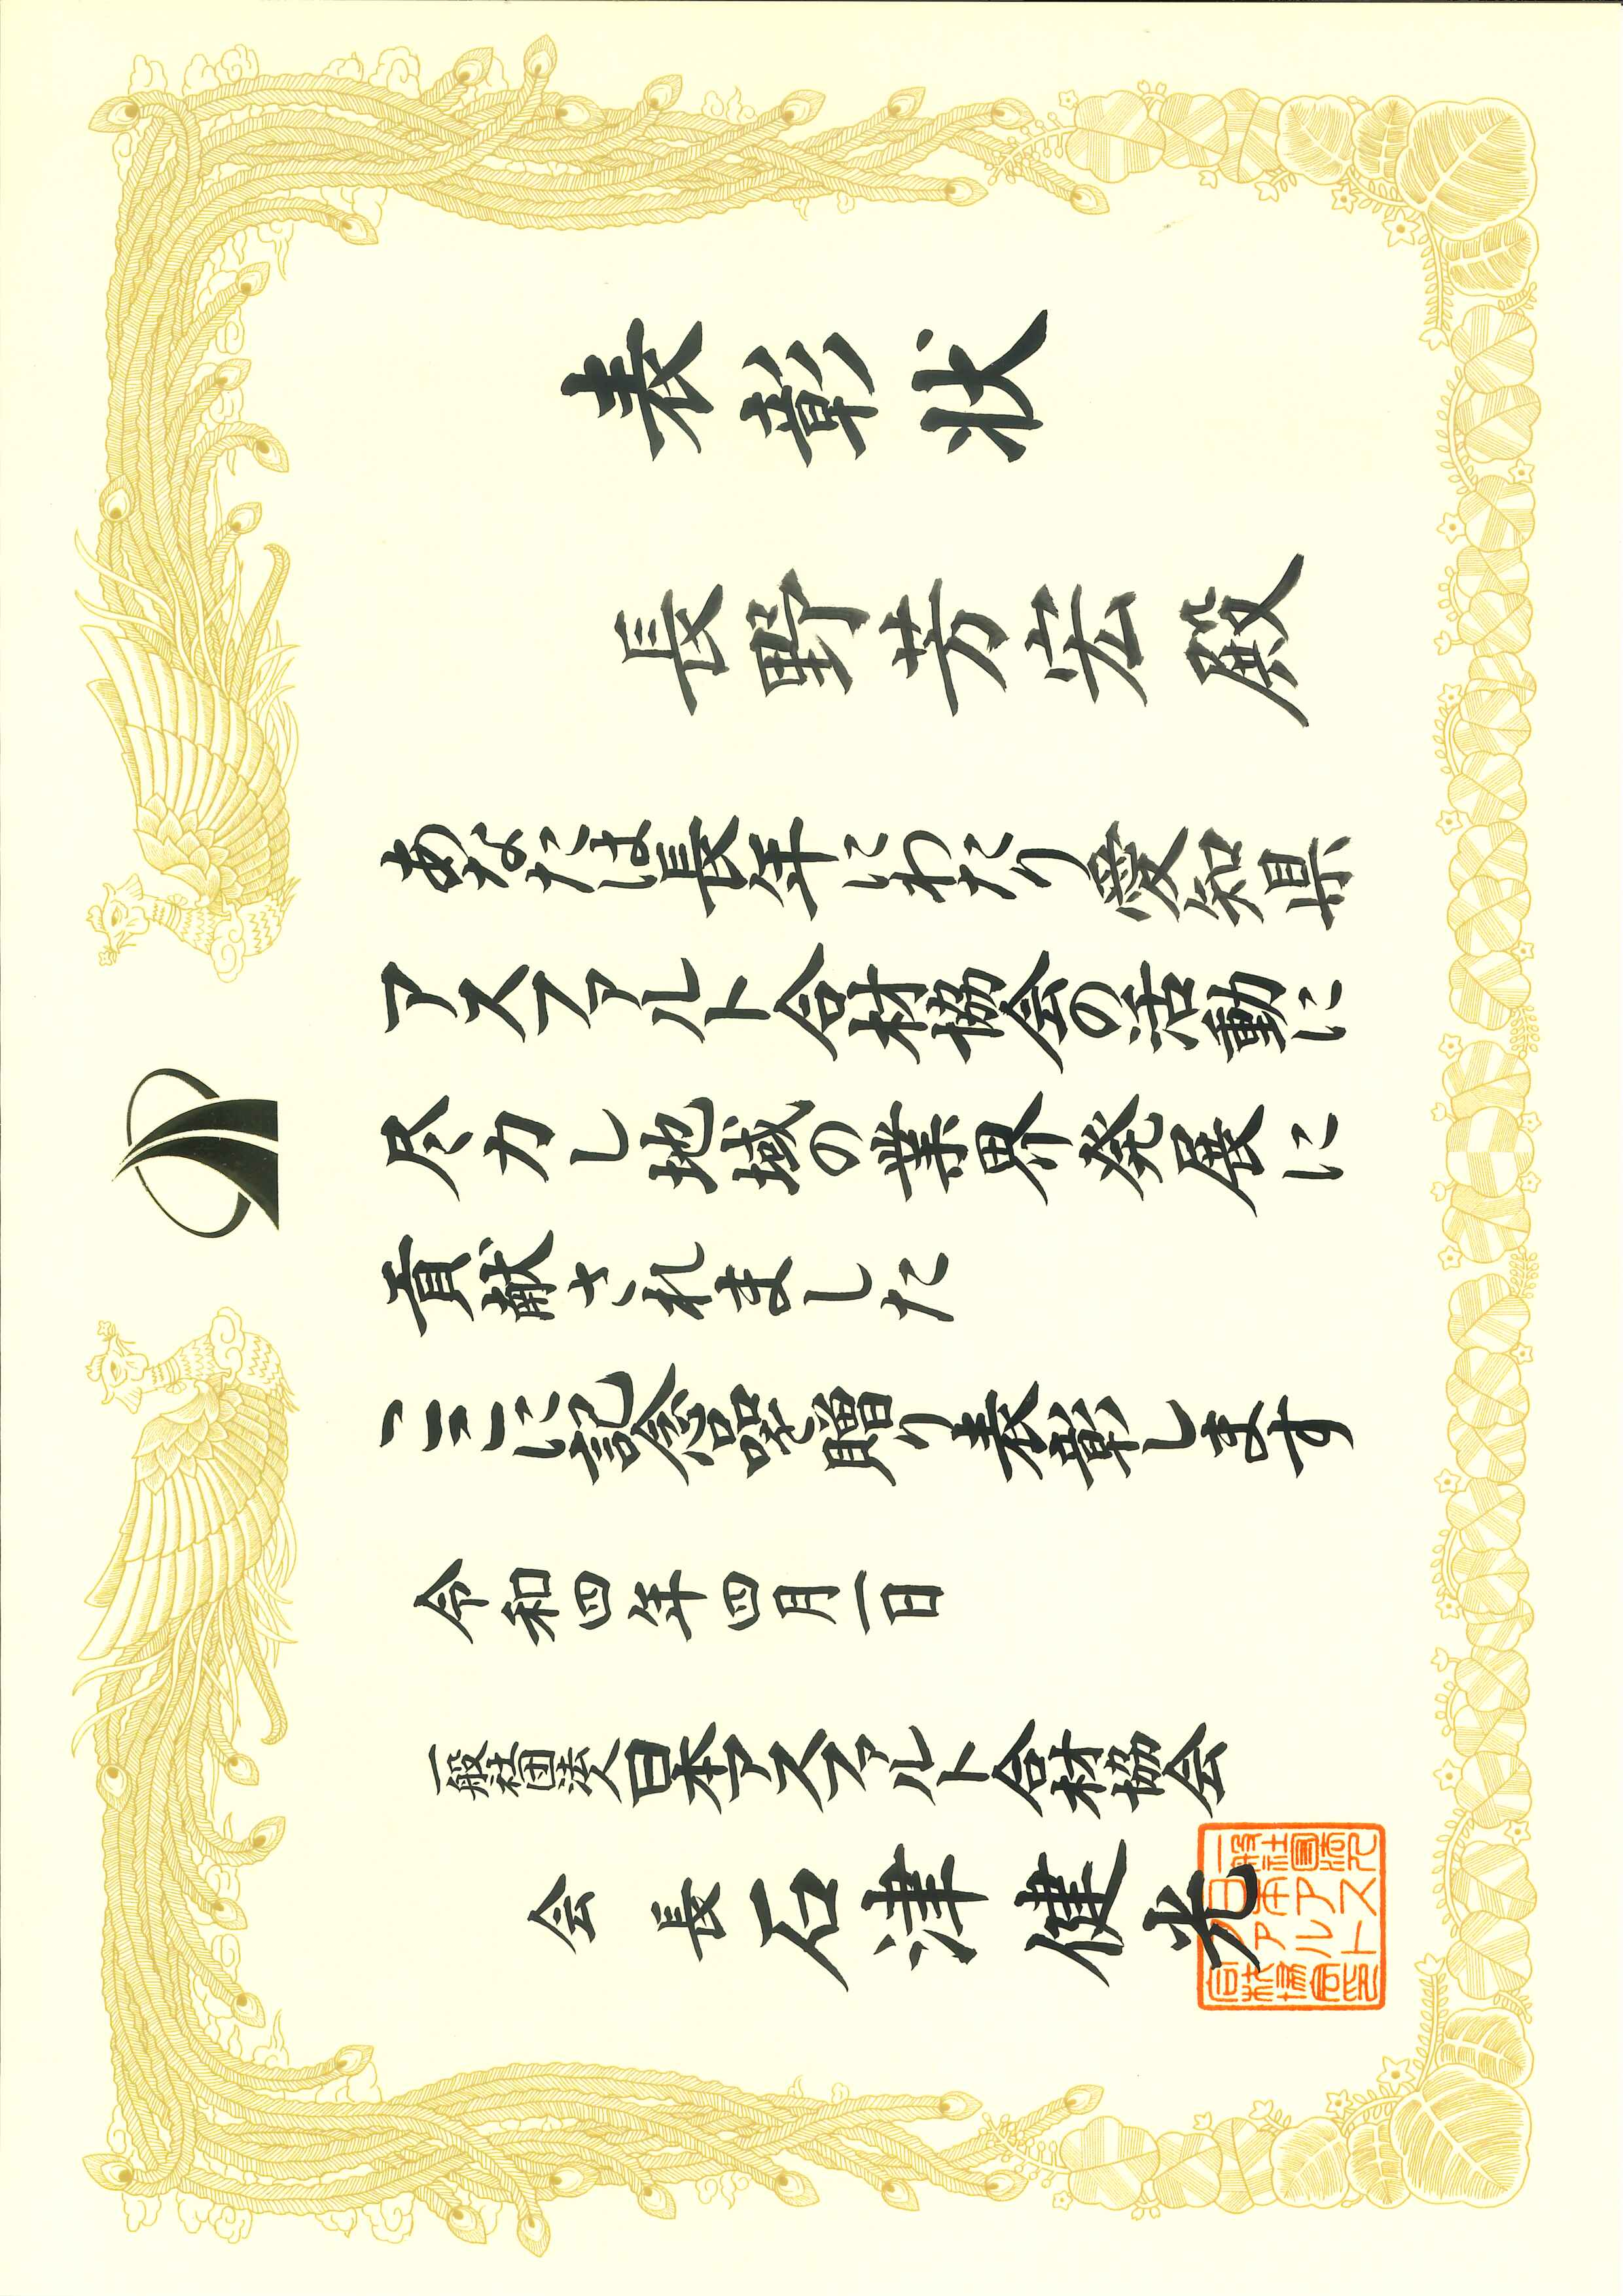 表彰状
長野芳宏殿
あなたは長年にわたり愛知県
アスファルト合材協会の活動に
尽力し地域の業界発展に
貢献されました
ここに記念品を贈り表彰します
令和四年四月一日
一般社団法人日本アスファルト合材協会
会長石津健光